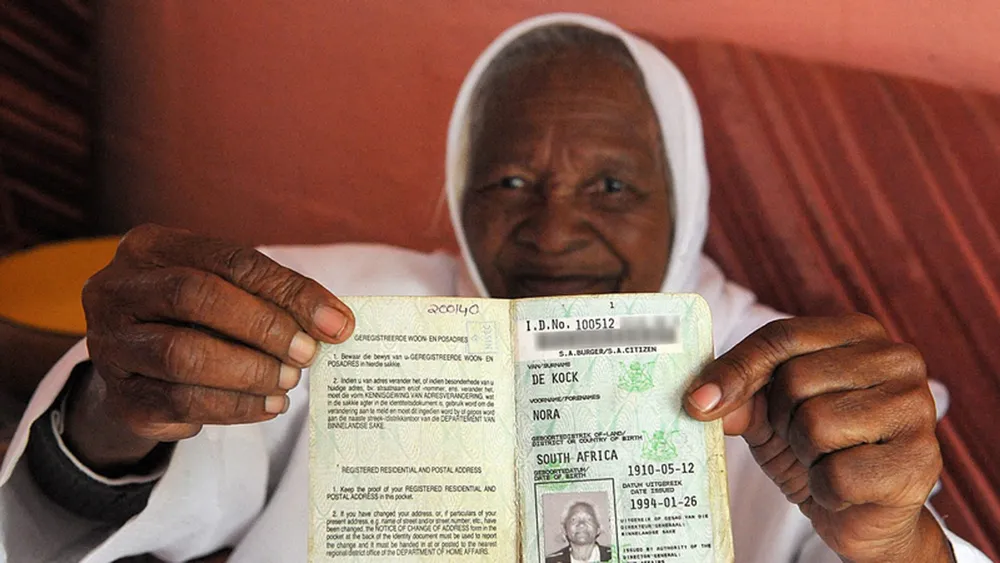 200140
GEREGISTREERDE WOON- EN
POSADRES
1. Bewaar die bewys van u GEREGISTREERDE WOON- EN
POSADRES in hierdie sakkie.
2. Indien u van adres verander het, of indien besonderhede van u
huidige adres, bv. straatnaam en/of -nommer, ens. verander het,
moet die vorm KENNISGEWING VAN ADRESVERANDERING, wat
in die sakkie agter in die identiteitsdokument is, gebruik word om die
verandering aan te meld en moet dit ingedien word by of gepos word
aan die naaste streek-/distrikkantoor van die DEPARTEMENT VAN
BINNELANDSE SAKE.
REGISTERED RESIDENTIAL AND POSTAL ADDRESS
1. Keep the proof of your REGISTERED RESIDENTIAL AND
POSTAL ADDRESS in this pocket.
2. If you have changed your address, or, if particulars of your
present address, e.g. name of street and/or street number, etc., have
been changed, the NOTICE OF CHANGE OF ADDRESS form in the
pocket at the back of the identity document must be used to report
the change and it must be handed in at or posted to the nearest
regional/district office of the DEPARTMENT OF HOME AFFAIRS.
1
I.D.No. 100512
S.A.BURGER/S.A.CITIZEN
VAN/SURNAME
DE KOCK
VOORNAME/FORENAMES
NORA
GEBOORTEDISTRIK OF-LAND/
DISTRICT OR COUNTRY OF BIRTH
SOUTH AFRICA
GEBOORTEDATUM/
DATE OF BIRTH
1910-05-12
DATUM UITGEREIK
DATE ISSUED
1994-01-26
UITGEREIK OP GESAG VAN DIE
DIREKTEUR-GENERAAL:
BINNELANDSE SAKE
ISSUED BY AUTHORITY OF THE
DIRECTOR-GENERAL:
HOME AFFAIRS